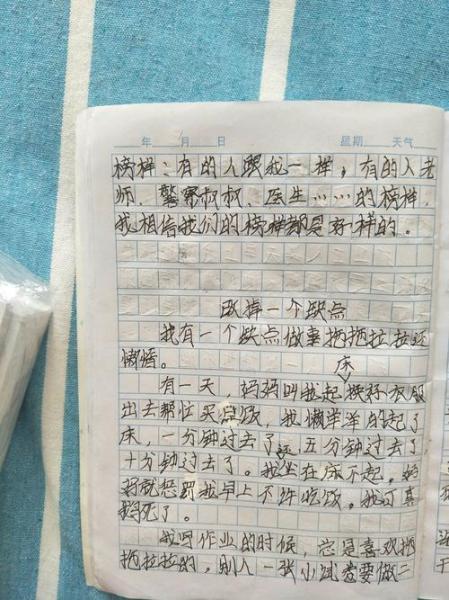 年 月 日 星期 天气
榜样:有的人跟我一样,有的人老
师、警察叔叔、医生……的榜样,
我相信我们的榜样都是好样的。
改掉一个缺点
我有一个缺点做事拖拖拉拉还
懒惰。
床
有一天,妈妈叫我起换好衣服
出去帮忙买早饭,我懒洋洋的起了
床,一分钟过去了,五分钟过去了,
十分钟过去了。我还坐在床不起,妈
妈就惩罚我早上不许吃饭。我可真
后悔死了。
我写作业的时候,总是喜欢拖
拖拉拉的,别人一张小试卷要做二